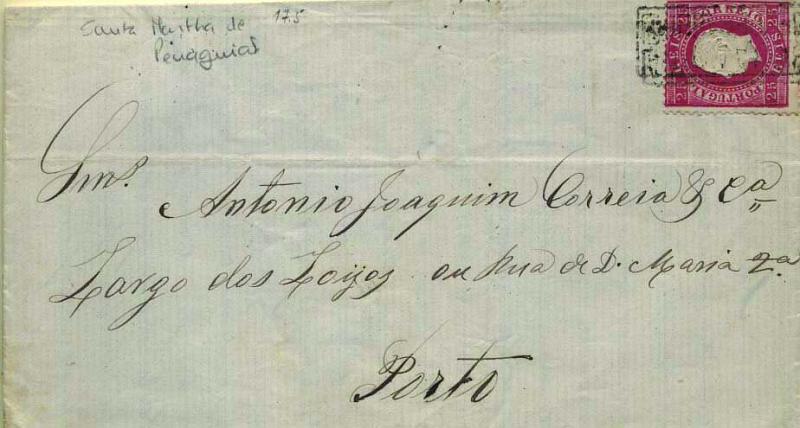 Santa Martha de 17.5
Penaguias
CORREIO
25 REIS 25
25 PORTUGAL 25
Smrs. Antonio Joaquim Correia & Ca
Largo dos Loijos ou Rua de D. Maria 2a.
Porto